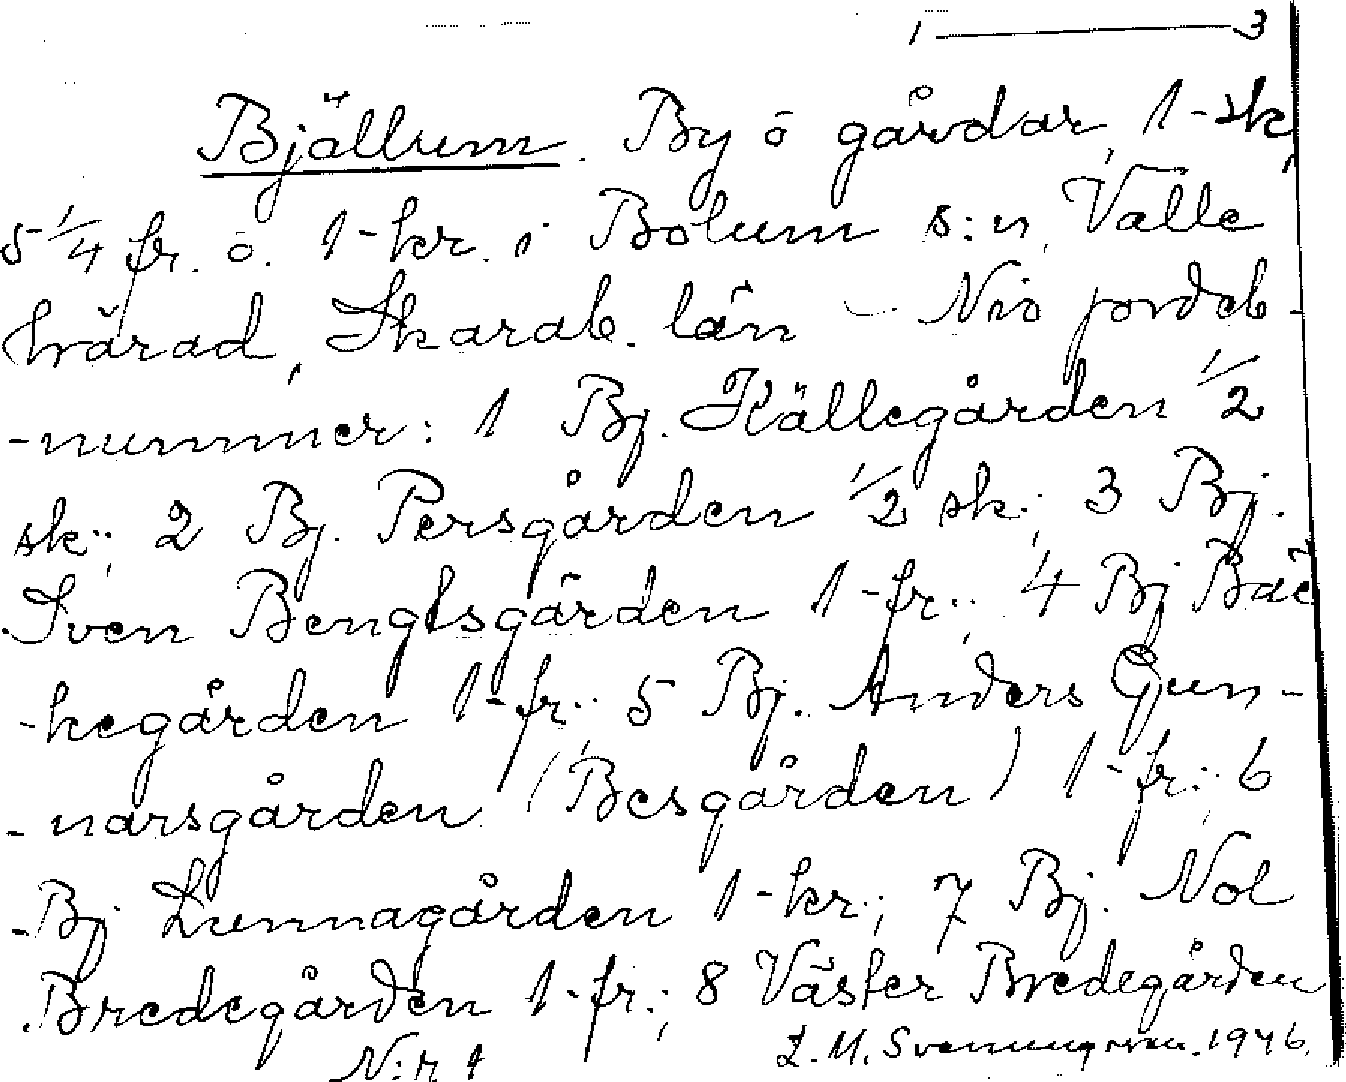 1 — 3
Bjällum. By o gårdar, 1-sk,
5 1/4 fr. o. 1-kr. i Bolum s:n, Valle
härad, Skarab. län - Nio jordeb-
-nummer: 1 Bj. Källegården 1/2
sk.; 2 Bj. Persgården 1/2 sk.; 3 Bj.
Sven Bengtsgården 1-fr.; 4 Bj Bäc
-kegården 1-fr.; 5 Bj. Anders Gun-
-narsgården (Besgården) 1-fr.; 6
-Bj. Lunnagården 1-kr.; 7 Bj. Nol
Bredegården 1-fr.; 8 Väster Bredegården
N:r 1 1946.